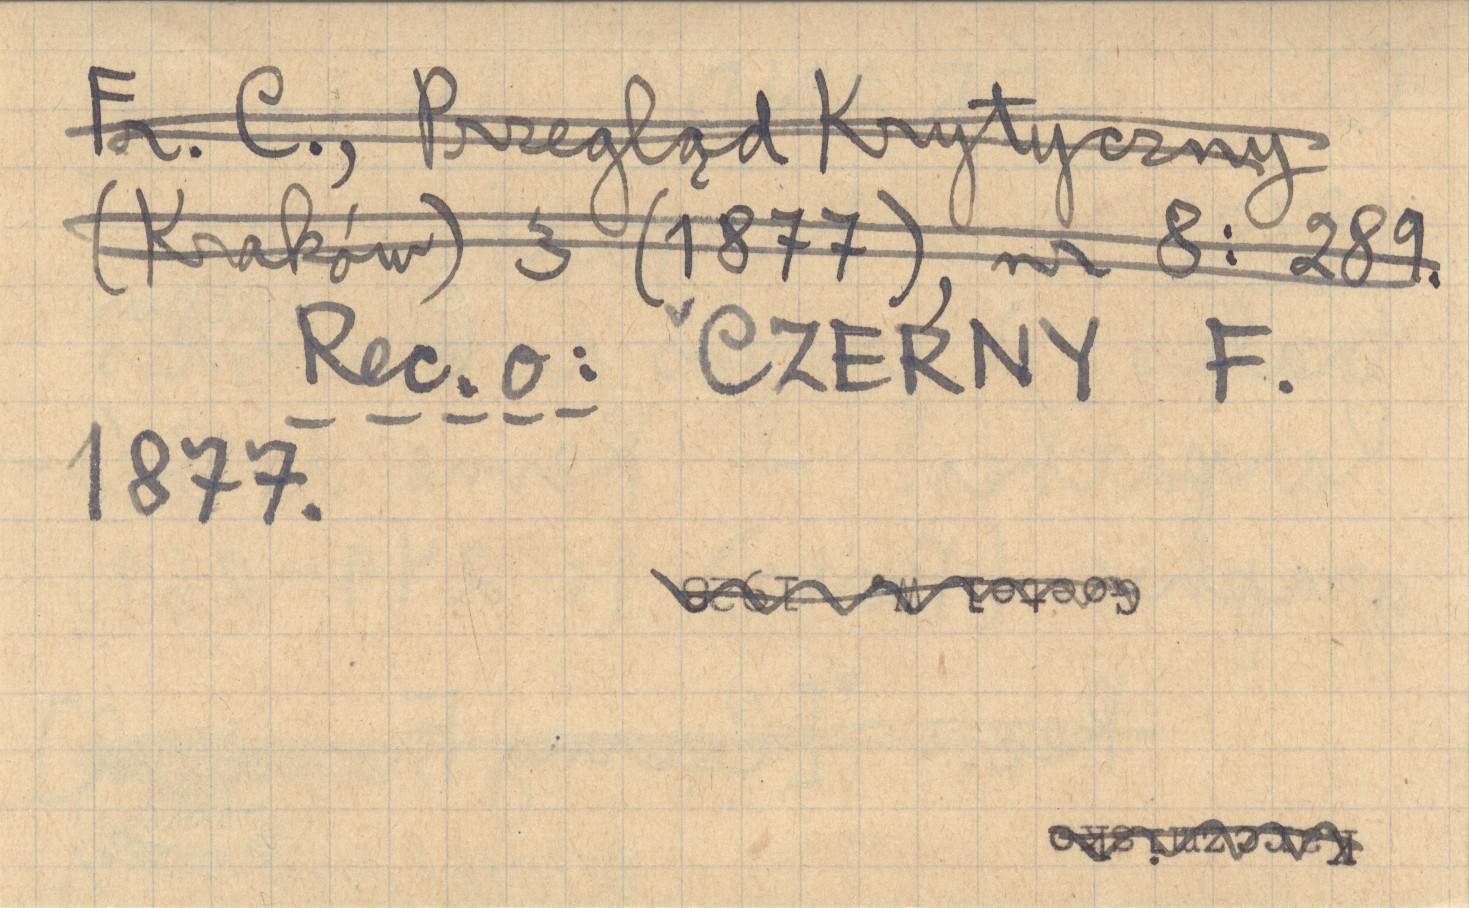 Fr. C., Przegląd Krytyczny
(Kraków) 3 (1877), nr 8: 289.
Rec. o: ˇCZERNY F.
1877.
Goetel W. 1928
Karczmisko